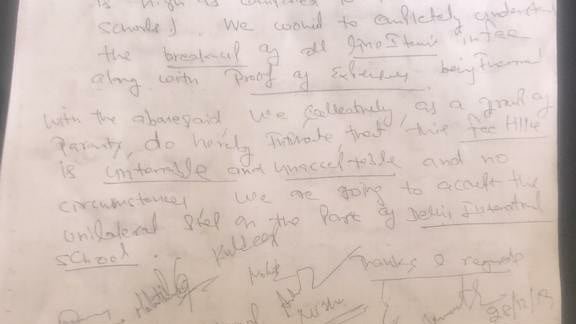 is high as compared to
schools). We would to completely understand
the breakup of all line Items in fee
along with Proof of Expenses being Incurred
with the aboresaid We collectively, as a group of
Parents, do hereby Intimate, that this fee Hike
is untenable and unacceptable and no
circumstances We are going to accept this
unilateral step on the Part of Delhi International
School.
Thanks & regards